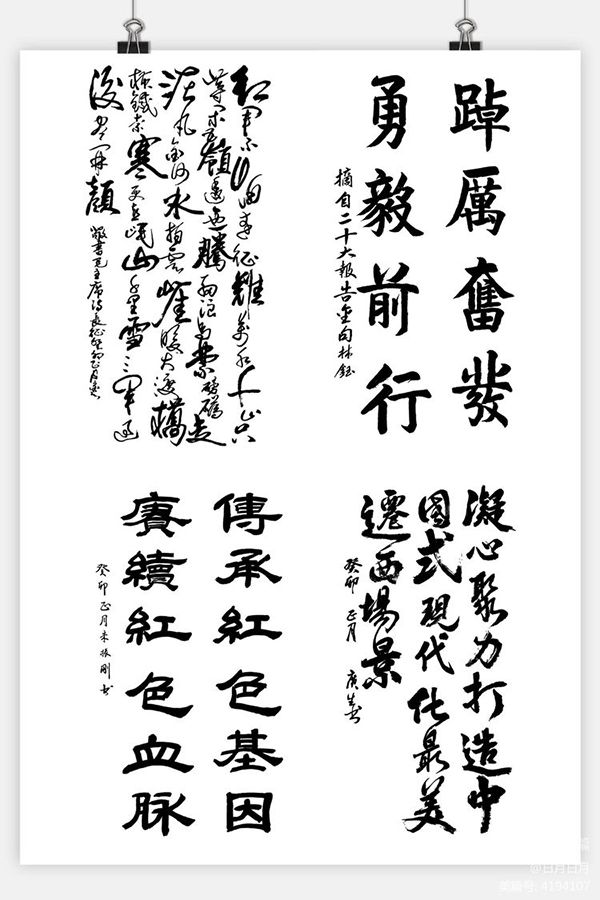 踔厲奮發
勇毅前行
摘自二十大報告金句林鈺
紅軍不怕遠征難萬水千山只
等閒五嶺逶迤騰細浪烏蒙磅礴走
泥丸金沙水拍雲崖暖大渡橋
橫鐵索寒更喜岷山千里雪三軍過
後盡開顏
敬書毛主席詩長征癸卯正月
凝心聚力打造中
國式現代化最美
遷西場景
癸卯 正月
傳承紅色基因
賡續紅色血脉
癸卯正月朱振剛书
@日月日月
4194107